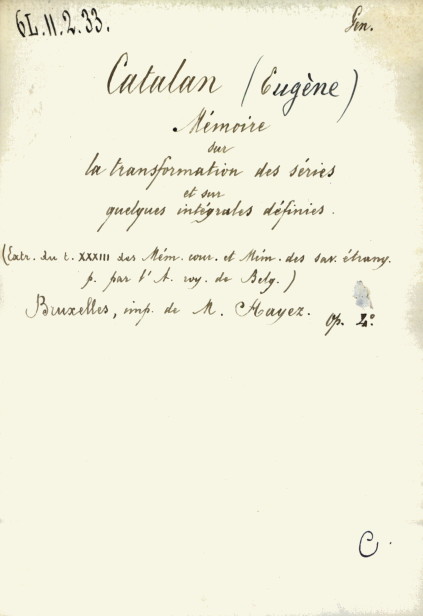 6L.11.2.33.
Gen.
Catalan (Eugène)
Mémoire
sur
la transformation des séries
et sur
quelques intégrales définies.
(Extr. du t. XXXIII des Mém. cour. et Mém. des sav. étrang.
p. par l'A. roy. de Belg.)
Bruxelles, imp. de M. Hayez.
Op. 4º.
C.